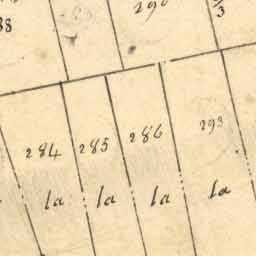 290
3
88
284 285 286 293
la la la la